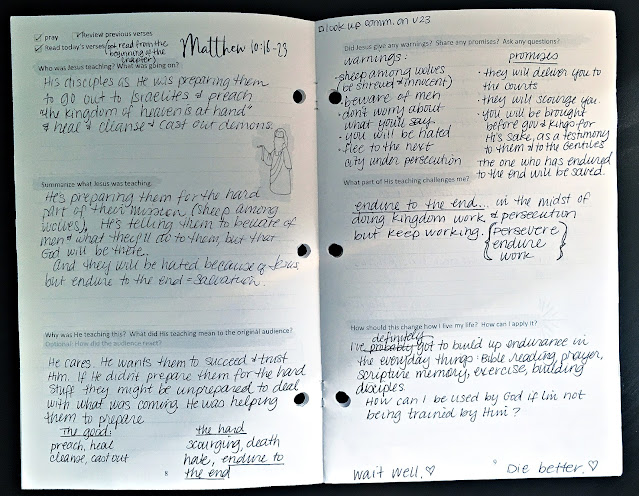 ☑ pray ☑ Review previous verses
☑ Read today's verses (or read from the
beginning of the
chapter)
Matthew 10:16-23
Who was Jesus teaching? What was going on?
His disciples as He was preparing them
to go out to Israelites & preach
"the kingdom of heaven is at hand"
& heal & cleanse & cast out demons.
Summarize what Jesus was teaching.
He's preparing them for the hard
part of their mission (sheep among
wolves). He's telling them to beware of
men & what they'll do to them, but that
God will be there.
And they will be hated because of Jesus
but endure to the end = salvation.
Why was He teaching this? What did His teaching mean to the original audience?
Optional: How did the audience react?
He cares. He wants them to succeed & trust
Him. If He didn't prepare them for the hard
stuff they might be unprepared to deal
with what was coming. He was helping
them to prepare
The good: the hard
preach, heal scourging, death
cleanse, cast out hate, endure to
the end
8
□ look up comm. on v23
Did Jesus give any warnings? Share any promises? Ask any questions?
warnings: promises
-sheep among wolves • they will deliver you to
(be shrewd & innocent) the courts
• beware of men • they will scourge you.
• don't worry about • you will be brought
what you'll say before gov & kings for
you will be hated His sake, as a testimony
• flee to the next to them & to the Gentiles
city under persecution the one who has endured
to the end will be saved.
What part of His teaching challenges me?
endure to the end... in the midst of
doing kingdom work & persecution
but keep working. {persevere
endure
work}
How should this change how I live my life? How can I apply it?
definitely
I've probably got to build up endurance in
the everyday things: Bible reading, prayer,
scripture memory, exercise, building
disciples
How can I be used by God if I'm not
being trained by Him?
wait well. ♡ Die better. ♡